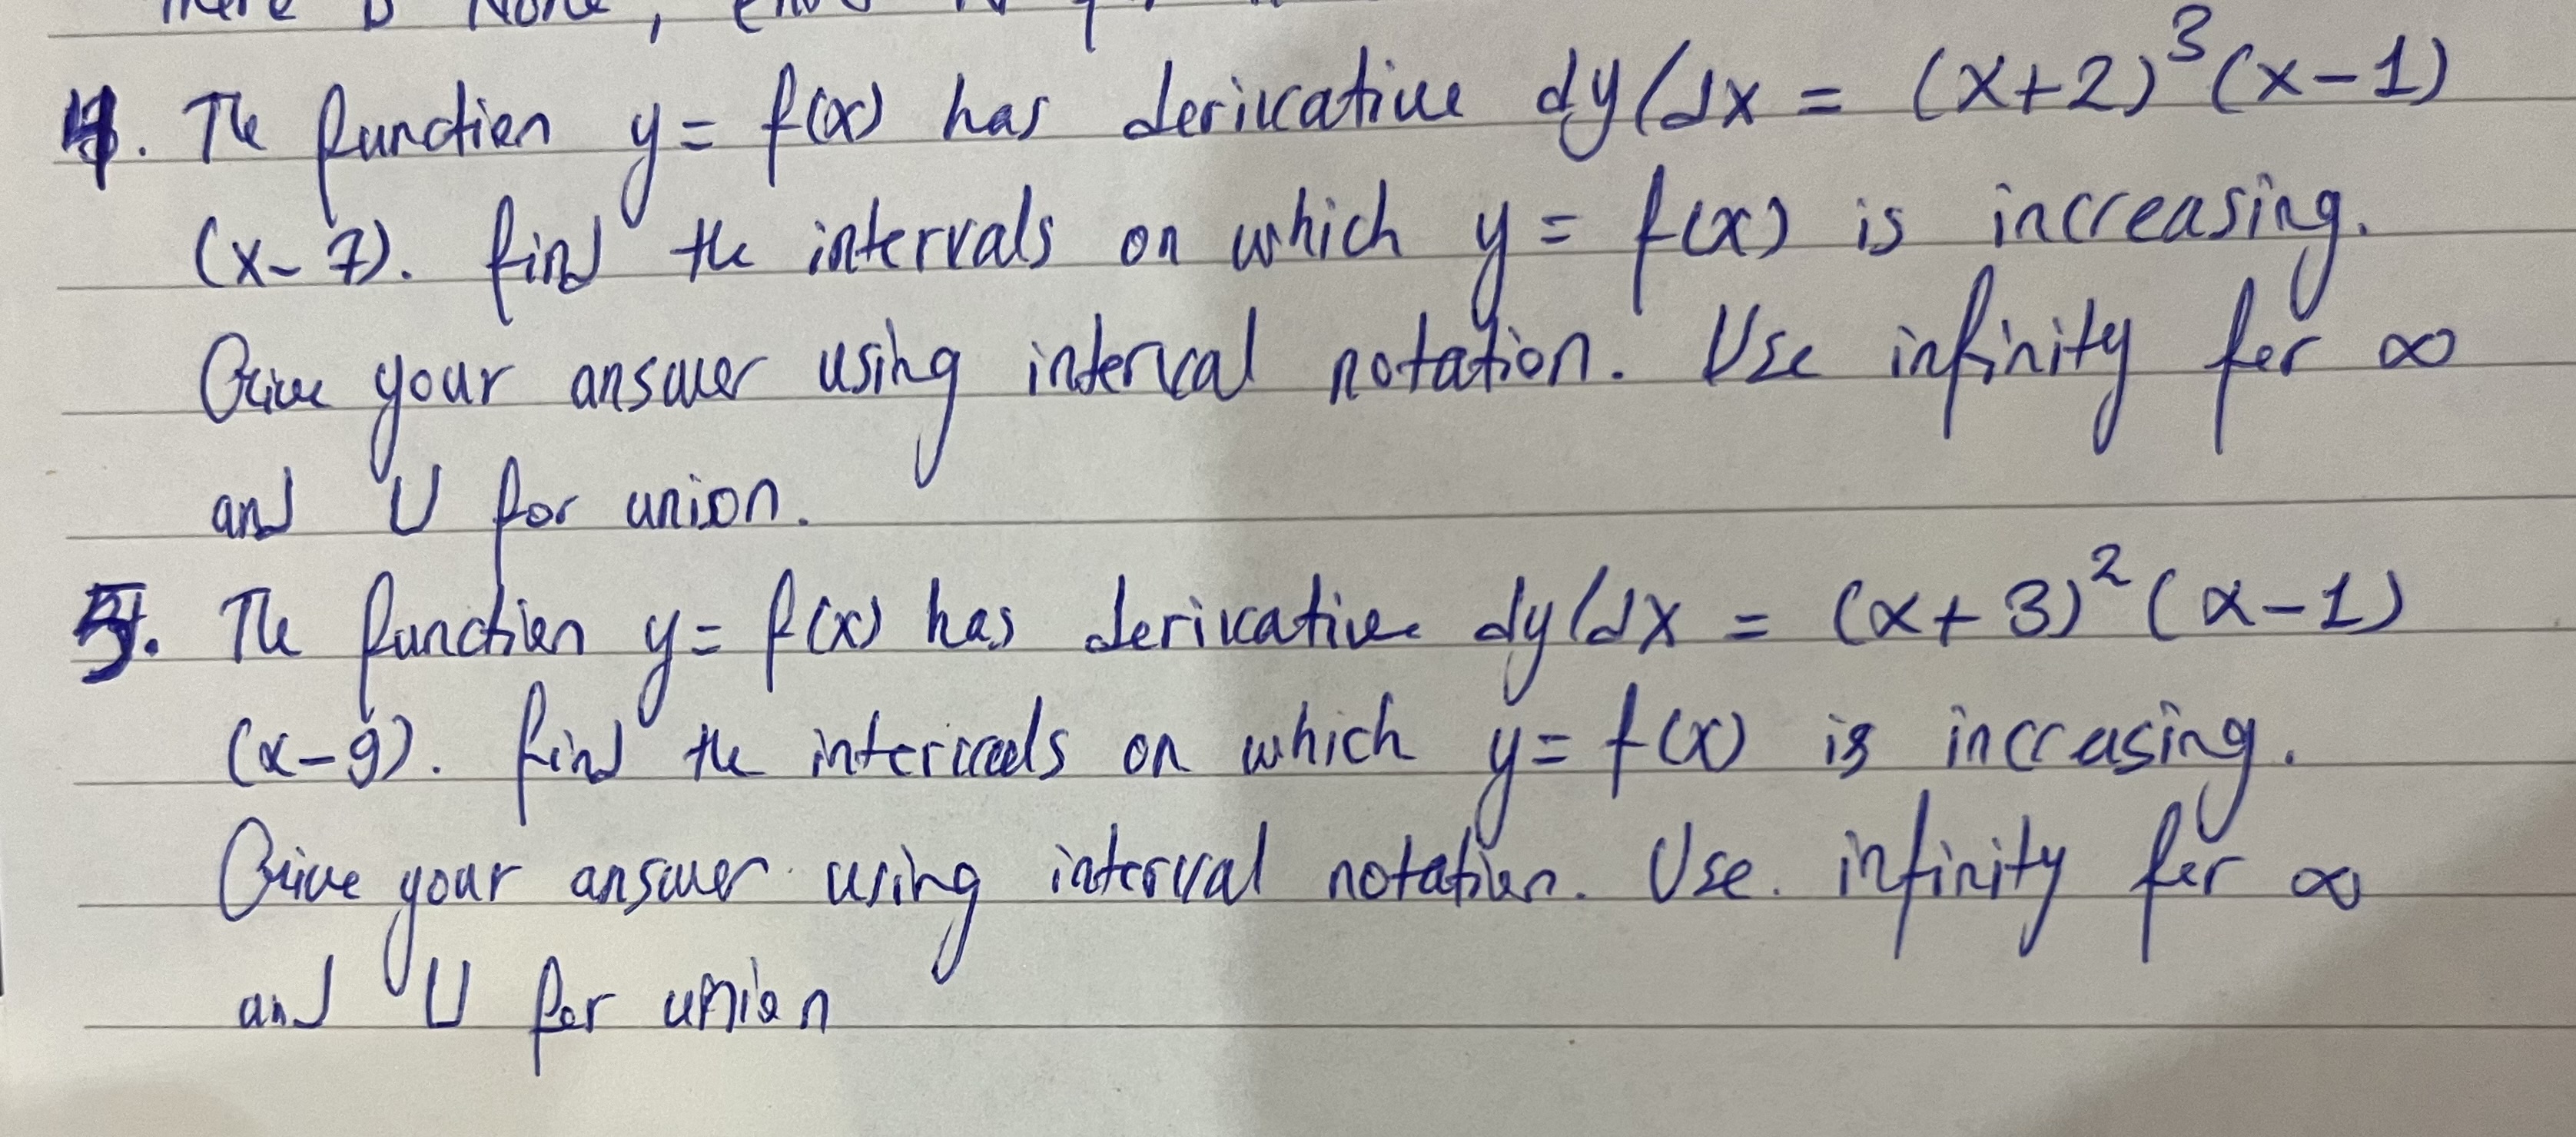 There is None, enter
4. The function y = f(x) has derivative dy/dx = (x+2)³(x-1)
(x-7). find the intervals on which y = f(x) is increasing.
Give your answer using interval notation. Use infinity for ∞
and U for union.
5. The function y = f(x) has derivative dy/dx = (x+3)²(x-1)
(x-9). find the intervals on which y = f(x) is increasing.
Give your answer using interval notation. Use infinity for ∞
and U for union